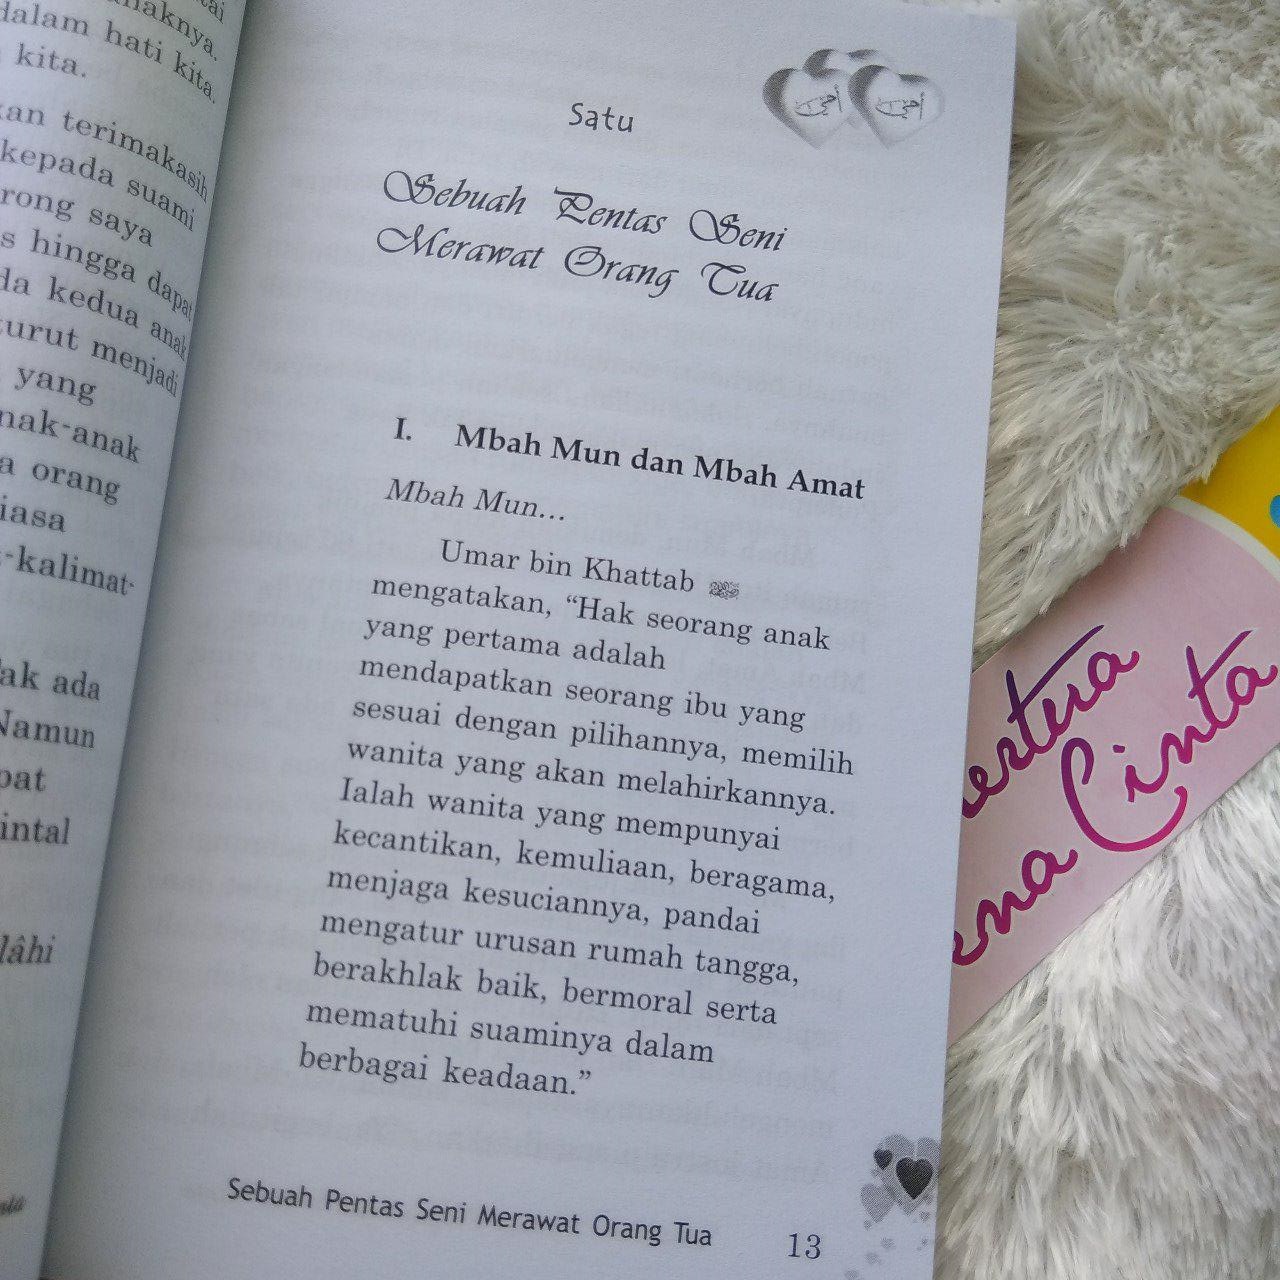 dalam hati kita.
kita.
kan terimakasih
kepada suami
rong saya
s hingga dapat
da kedua anak
turut menjadi
yang
nak-anak
a orang
iasa
-kalimat-
dak ada
Namun
pat
intal
lâhi
Satu
Sebuah Pentas Seni
Merawat Orang Tua
I. Mbah Mun dan Mbah Amat
Mbah Mun...
Umar bin Khattab
mengatakan, “Hak seorang anak
yang pertama adalah
mendapatkan seorang ibu yang
sesuai dengan pilihannya, memilih
wanita yang akan melahirkannya.
Ialah wanita yang mempunyai
kecantikan, kemuliaan, beragama,
menjaga kesuciannya, pandai
mengatur urusan rumah tangga,
berakhlak baik, bermoral serta
mematuhi suaminya dalam
berbagai keadaan.”
Sebuah Pentas Seni Merawat Orang Tua 13
ertua
ena Cinta